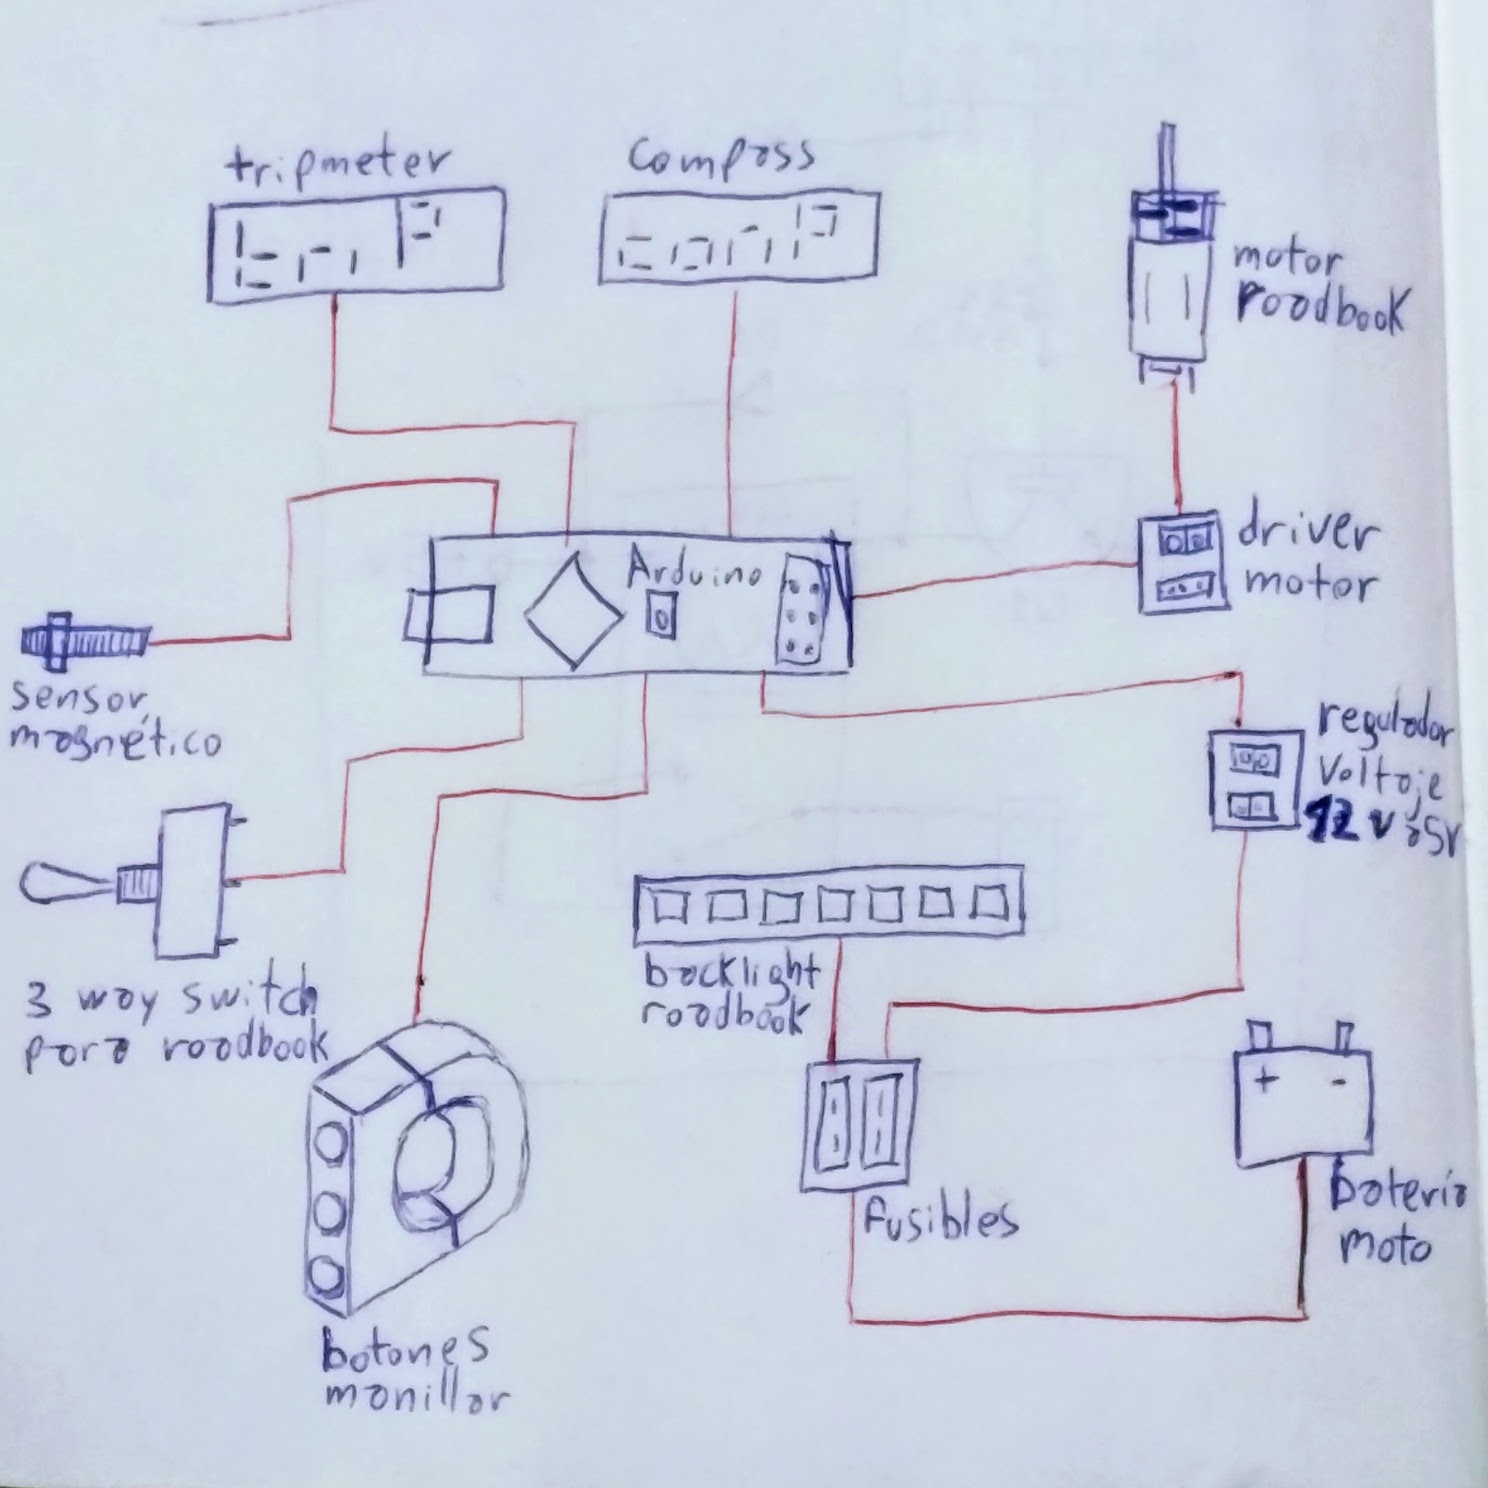 tripmeter
compass
trip
comp
motor
roodbook
Arduino
driver
motor
sensor
magnético
regulador
Voltaje
12 v a 5v
3 way switch
para roadbook
backlight
roadbook
+ -
bateria
moto
fusibles
botones
manillar